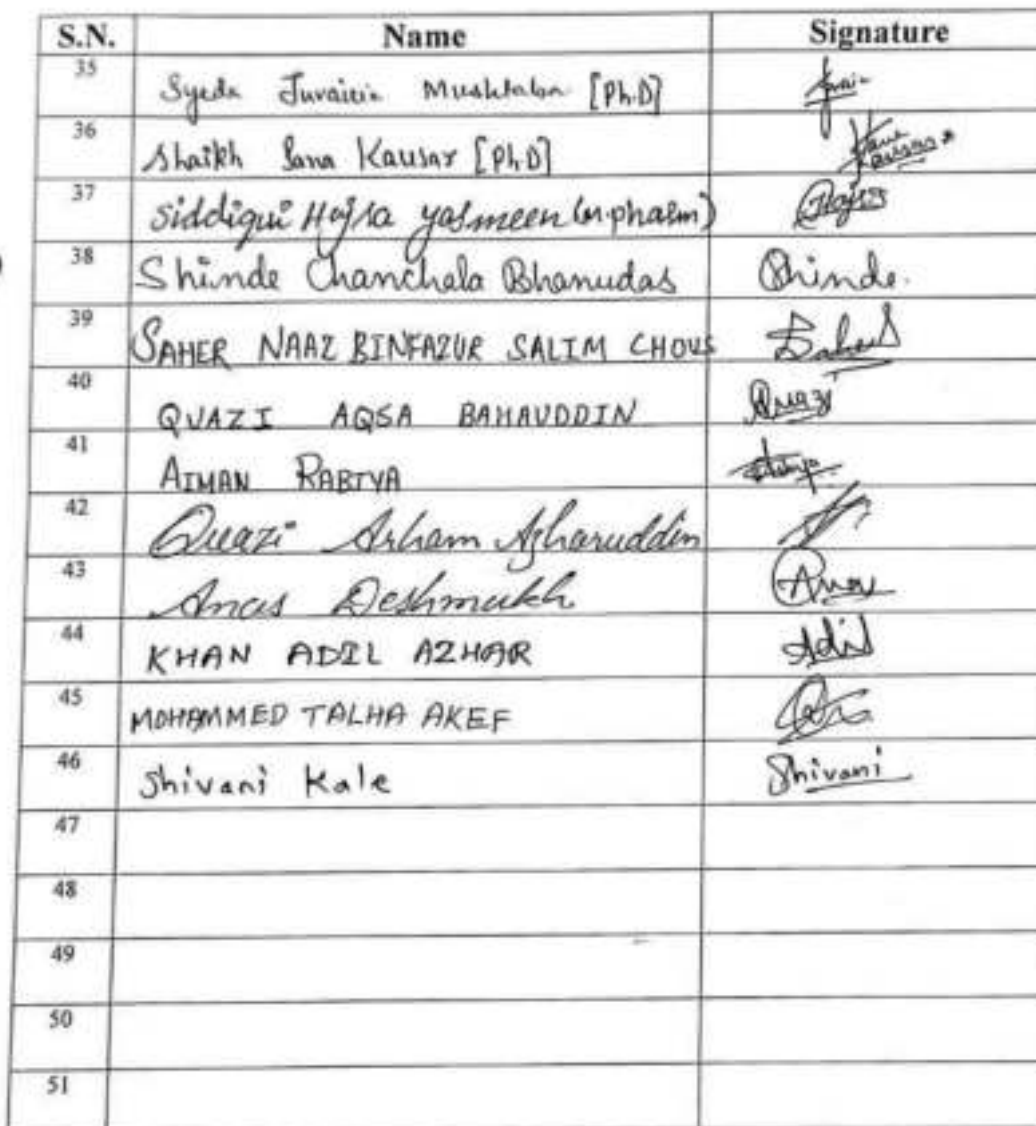 S.N. Name Signature
35 Syeda Juvairia Mushtaba [Ph.D]
36 Shaikh Sana Kausar [Ph.D] Sana Kausar
37 Siddiqui Hajra yasmeen (m.pharm) Hajra
38 Shinde Chanchala Bhanudas Shinde.
39 SAHER NAAZ BINFAZUR SALIM CHOUS Saher
40 QUAZI AQSA BAHAUDDIN Quazi
41 AIMAN RABIYA
42 Quazi Arham Azharuddin
43 Anas Deshmukh Anas
44 KHAN ADIL AZHAR Adil
45 MOHAMMED TALHA AKEF
46 Shivani Kale Shivani
47
48
49
50
51